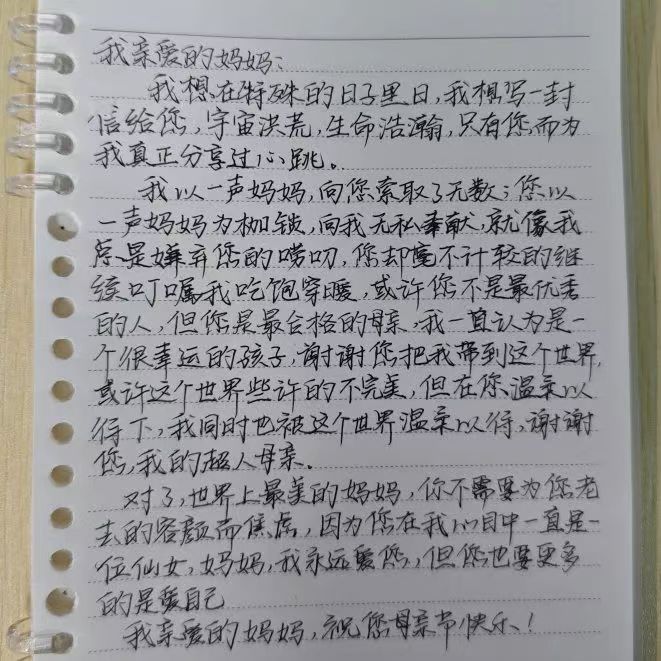 我亲爱的妈妈:
我想在特殊的日子里日,我想写一封
信给您,宇宙洪荒,生命浩瀚,只有您而为
我真正分享过心跳。
我以一声妈妈,向您索取了无数;您以
一声妈妈为枷锁,向我无私奉献,就像我
总是嫌弃您的唠叨,您却毫不计较的继
续叮嘱我吃饱穿暖,或许您不是最优秀
的人,但您是最合格的母亲,我一直认为是一
个很幸运的孩子,谢谢您把我带到这个世界,
或许这个世界些许的不完美,但在您温柔以
待下,我同时也被这个世界温柔以待,谢谢
您,我的超人母亲。
对了,世界上最美的妈妈,你不需要为您老
去的容颜而焦虑,因为您在我心目中一直是一
位仙女,妈妈,我永远爱您,但您也要更多
的是爱自己
我亲爱的妈妈,祝您母亲节快乐!